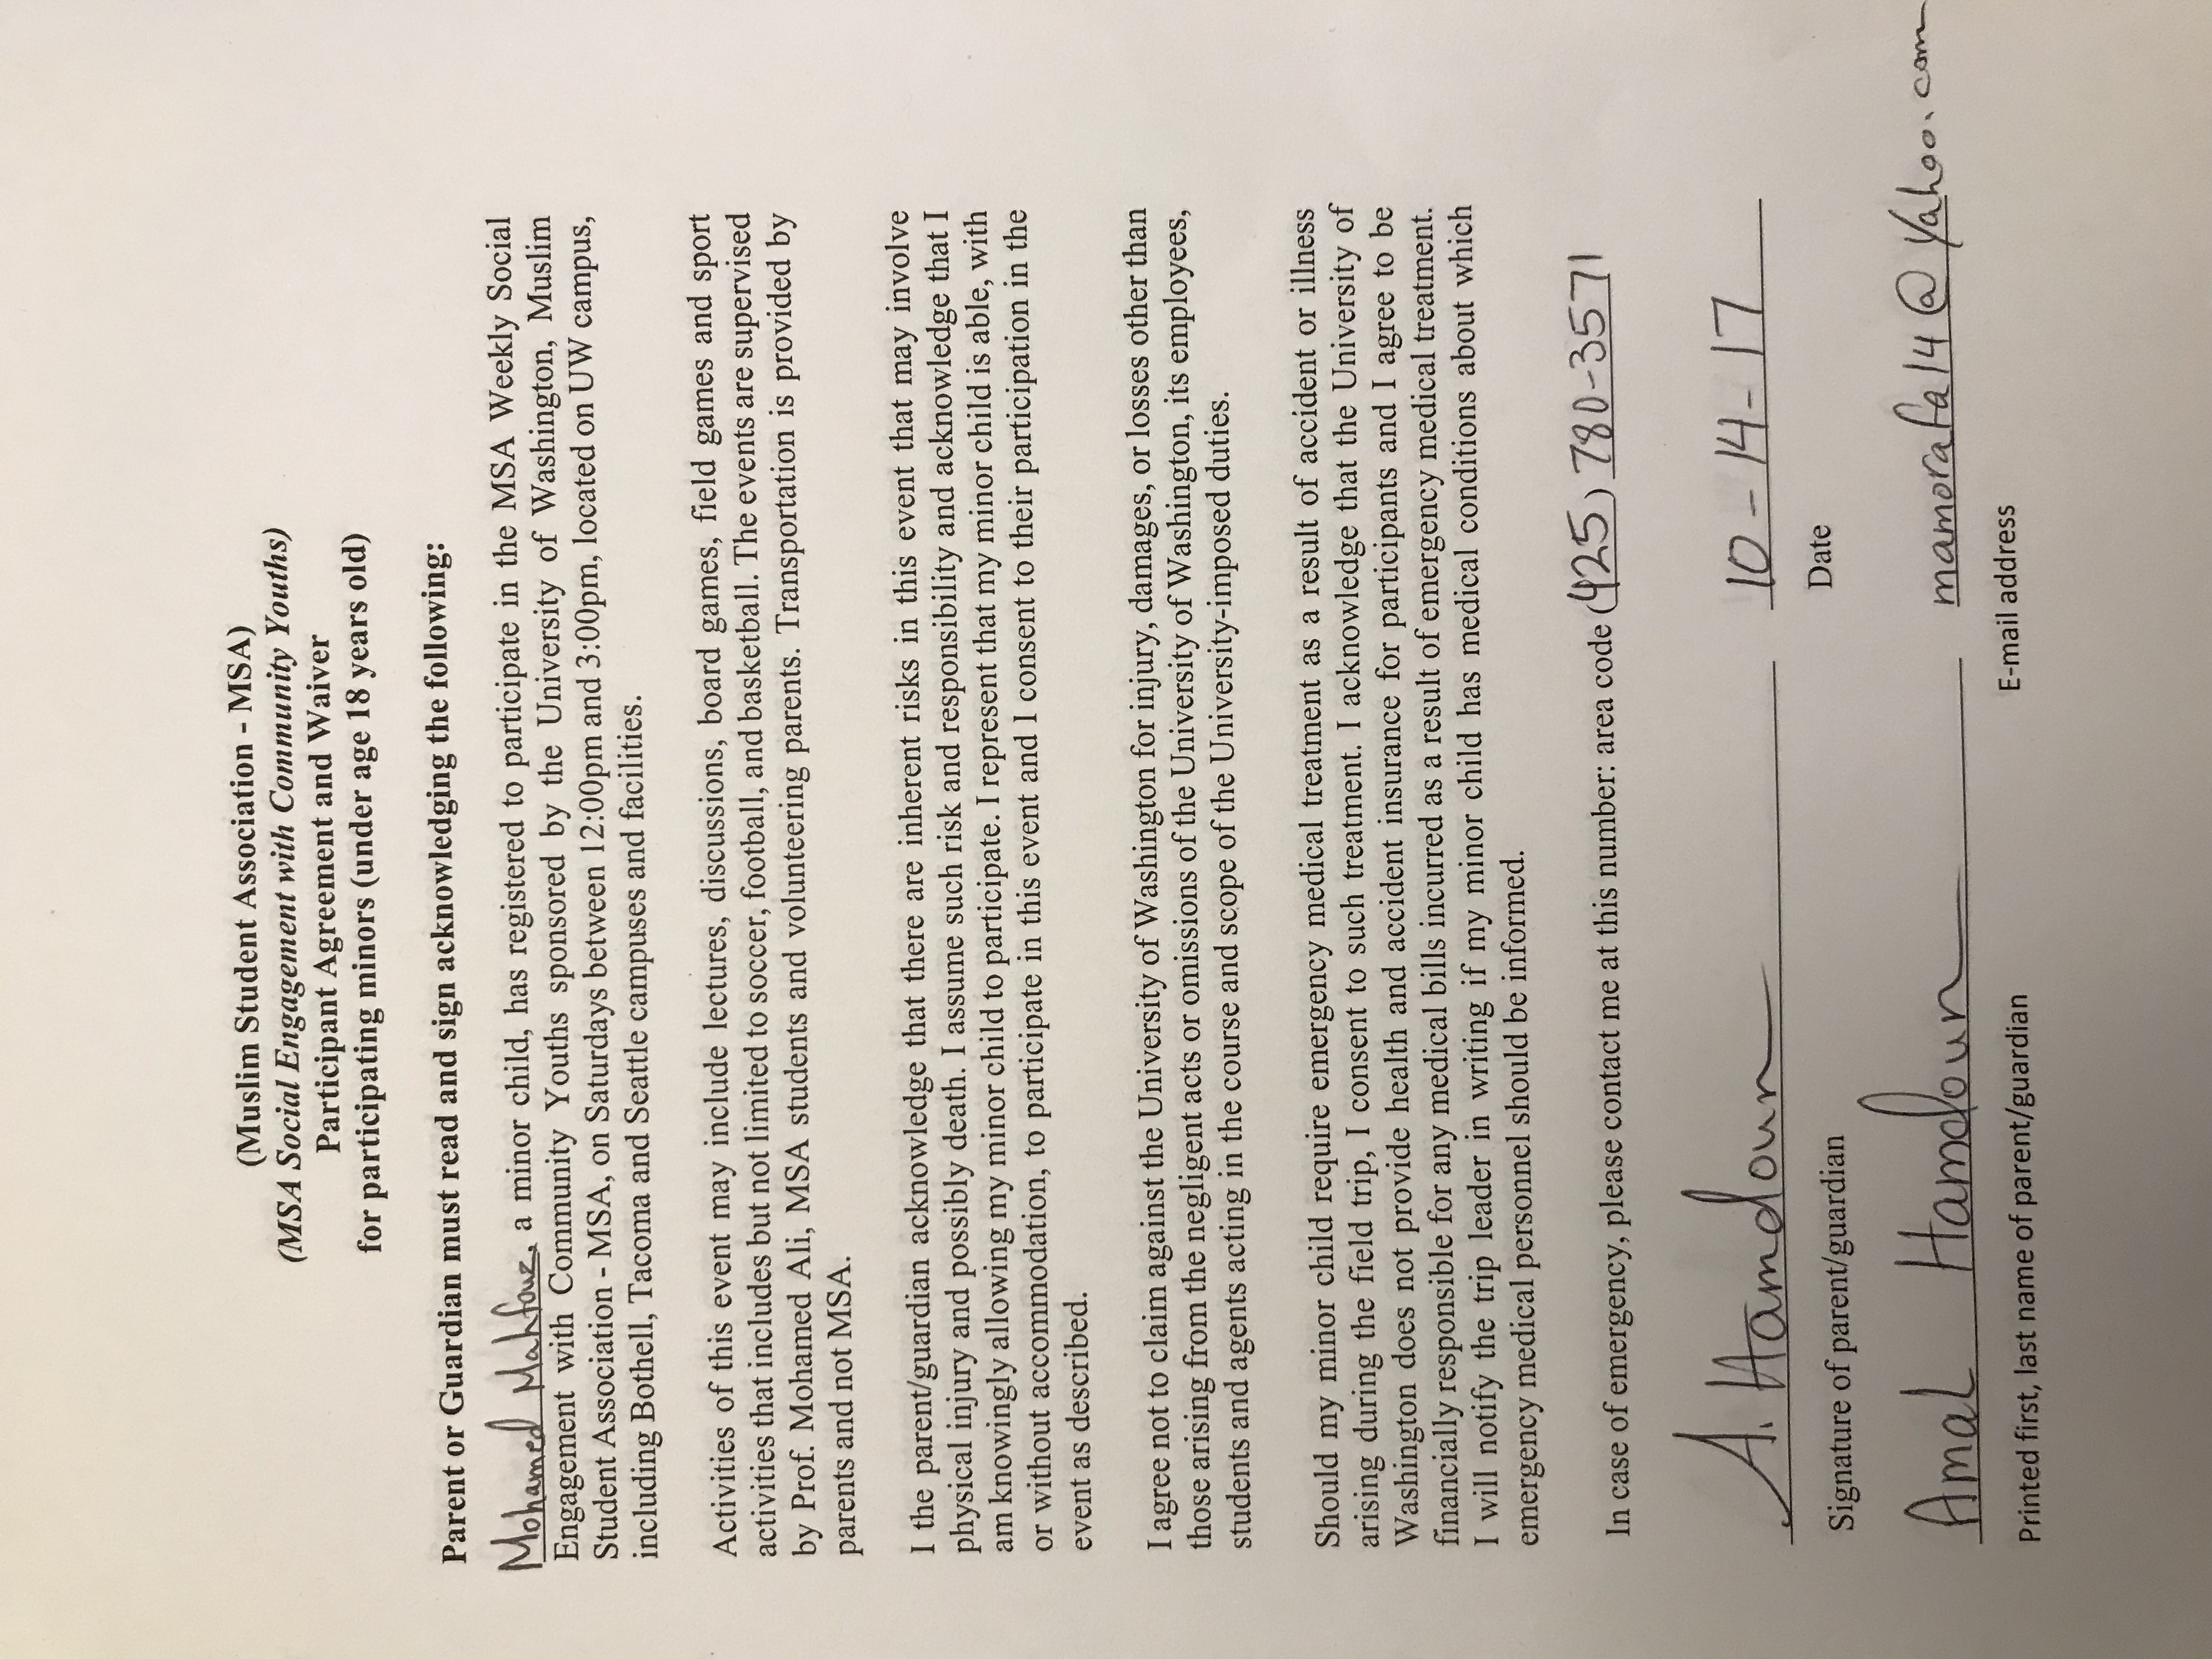 (Muslim Student Association - MSA)
(MSA Social Engagement with Community Youths)
Participant Agreement and Waiver
for participating minors (under age 18 years old)
Parent or Guardian must read and sign acknowledging the following:
Mohamed Mahfouz, a minor child, has registered to participate in the MSA Weekly Social
Engagement with Community Youths sponsored by the University of Washington, Muslim
Student Association - MSA, on Saturdays between 12:00pm and 3:00pm, located on UW campus,
including Bothell, Tacoma and Seattle campuses and facilities.
Activities of this event may include lectures, discussions, board games, field games and sport
activities that includes but not limited to soccer, football, and basketball. The events are supervised
by Prof. Mohamed Ali, MSA students and volunteering parents. Transportation is provided by
parents and not MSA.
I the parent/guardian acknowledge that there are inherent risks in this event that may involve
physical injury and possibly death. I assume such risk and responsibility and acknowledge that I
am knowingly allowing my minor child to participate. I represent that my minor child is able, with
or without accommodation, to participate in this event and I consent to their participation in the
event as described.
I agree not to claim against the University of Washington for injury, damages, or losses other than
those arising from the negligent acts or omissions of the University of Washington, its employees,
students and agents acting in the course and scope of the University-imposed duties.
Should my minor child require emergency medical treatment as a result of accident or illness
arising during the field trip, I consent to such treatment. I acknowledge that the University of
Washington does not provide health and accident insurance for participants and I agree to be
financially responsible for any medical bills incurred as a result of emergency medical treatment.
I will notify the trip leader in writing if my minor child has medical conditions about which
emergency medical personnel should be informed.
In case of emergency, please contact me at this number: area code (425) 780-3571
A. Hamdoun 10-14-17
Signature of parent/guardian Date
Amal Hamdoun mamorafa14@yahoo.com
Printed first, last name of parent/guardian E-mail address